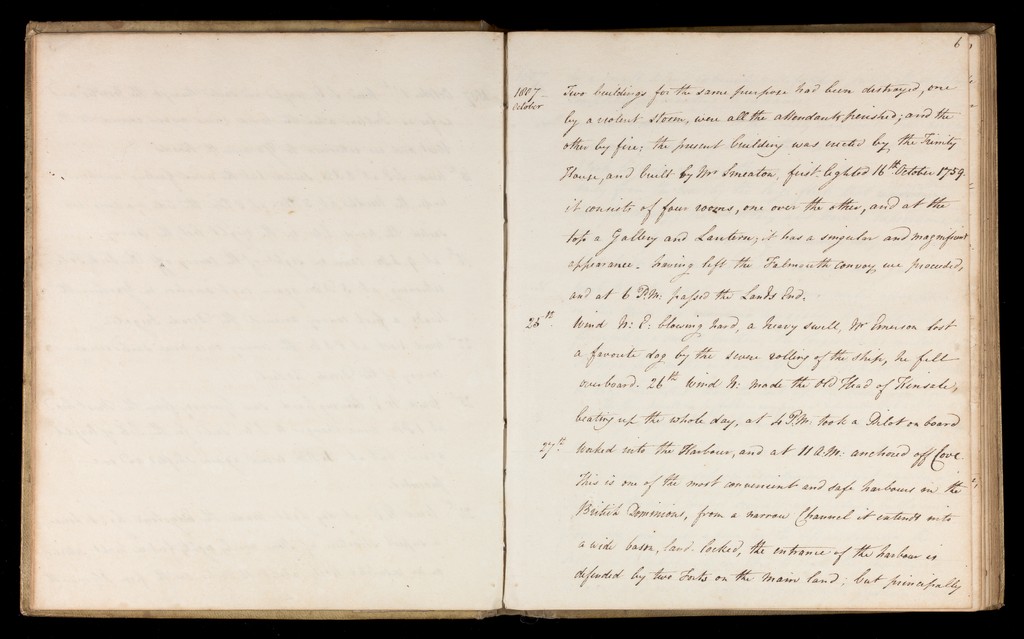 6
1807 Two buildings for the same purpose had been destroyed, one
October by a violent storm, were all the attendants perished; and the
other by fire; the present building was erected by the Trinity
House, and built by Mr Smeaton, first lighted 16th October 1759.
it consists of four rooms, one over the other, and at the
top a Gallery and Lantern; it has a singular and magnificent
appearance. having left the Falmouth convoy we proceeded,
and at 6 P.M: passed the Lands End.
25th. Wind N: E: blowing hard, a heavy swell, Mr Emerson lost
a favorite dog by the severe rolling of the ship, he fell
overboard. 26th Wind N: made the Old Head of Kinsale,
beating up the whole day, at 4 P.M. took a Pilot on board
27th. Worked into the Harbour, and at 11 A.M: anchored off Cove.
This is one of the most convenient and safe harbours in the
British Dominions, from a narrow Channel it extends into
a wide bason, land-locked, the entrance of the harbour is
defended by two Forts on the main land; but principally